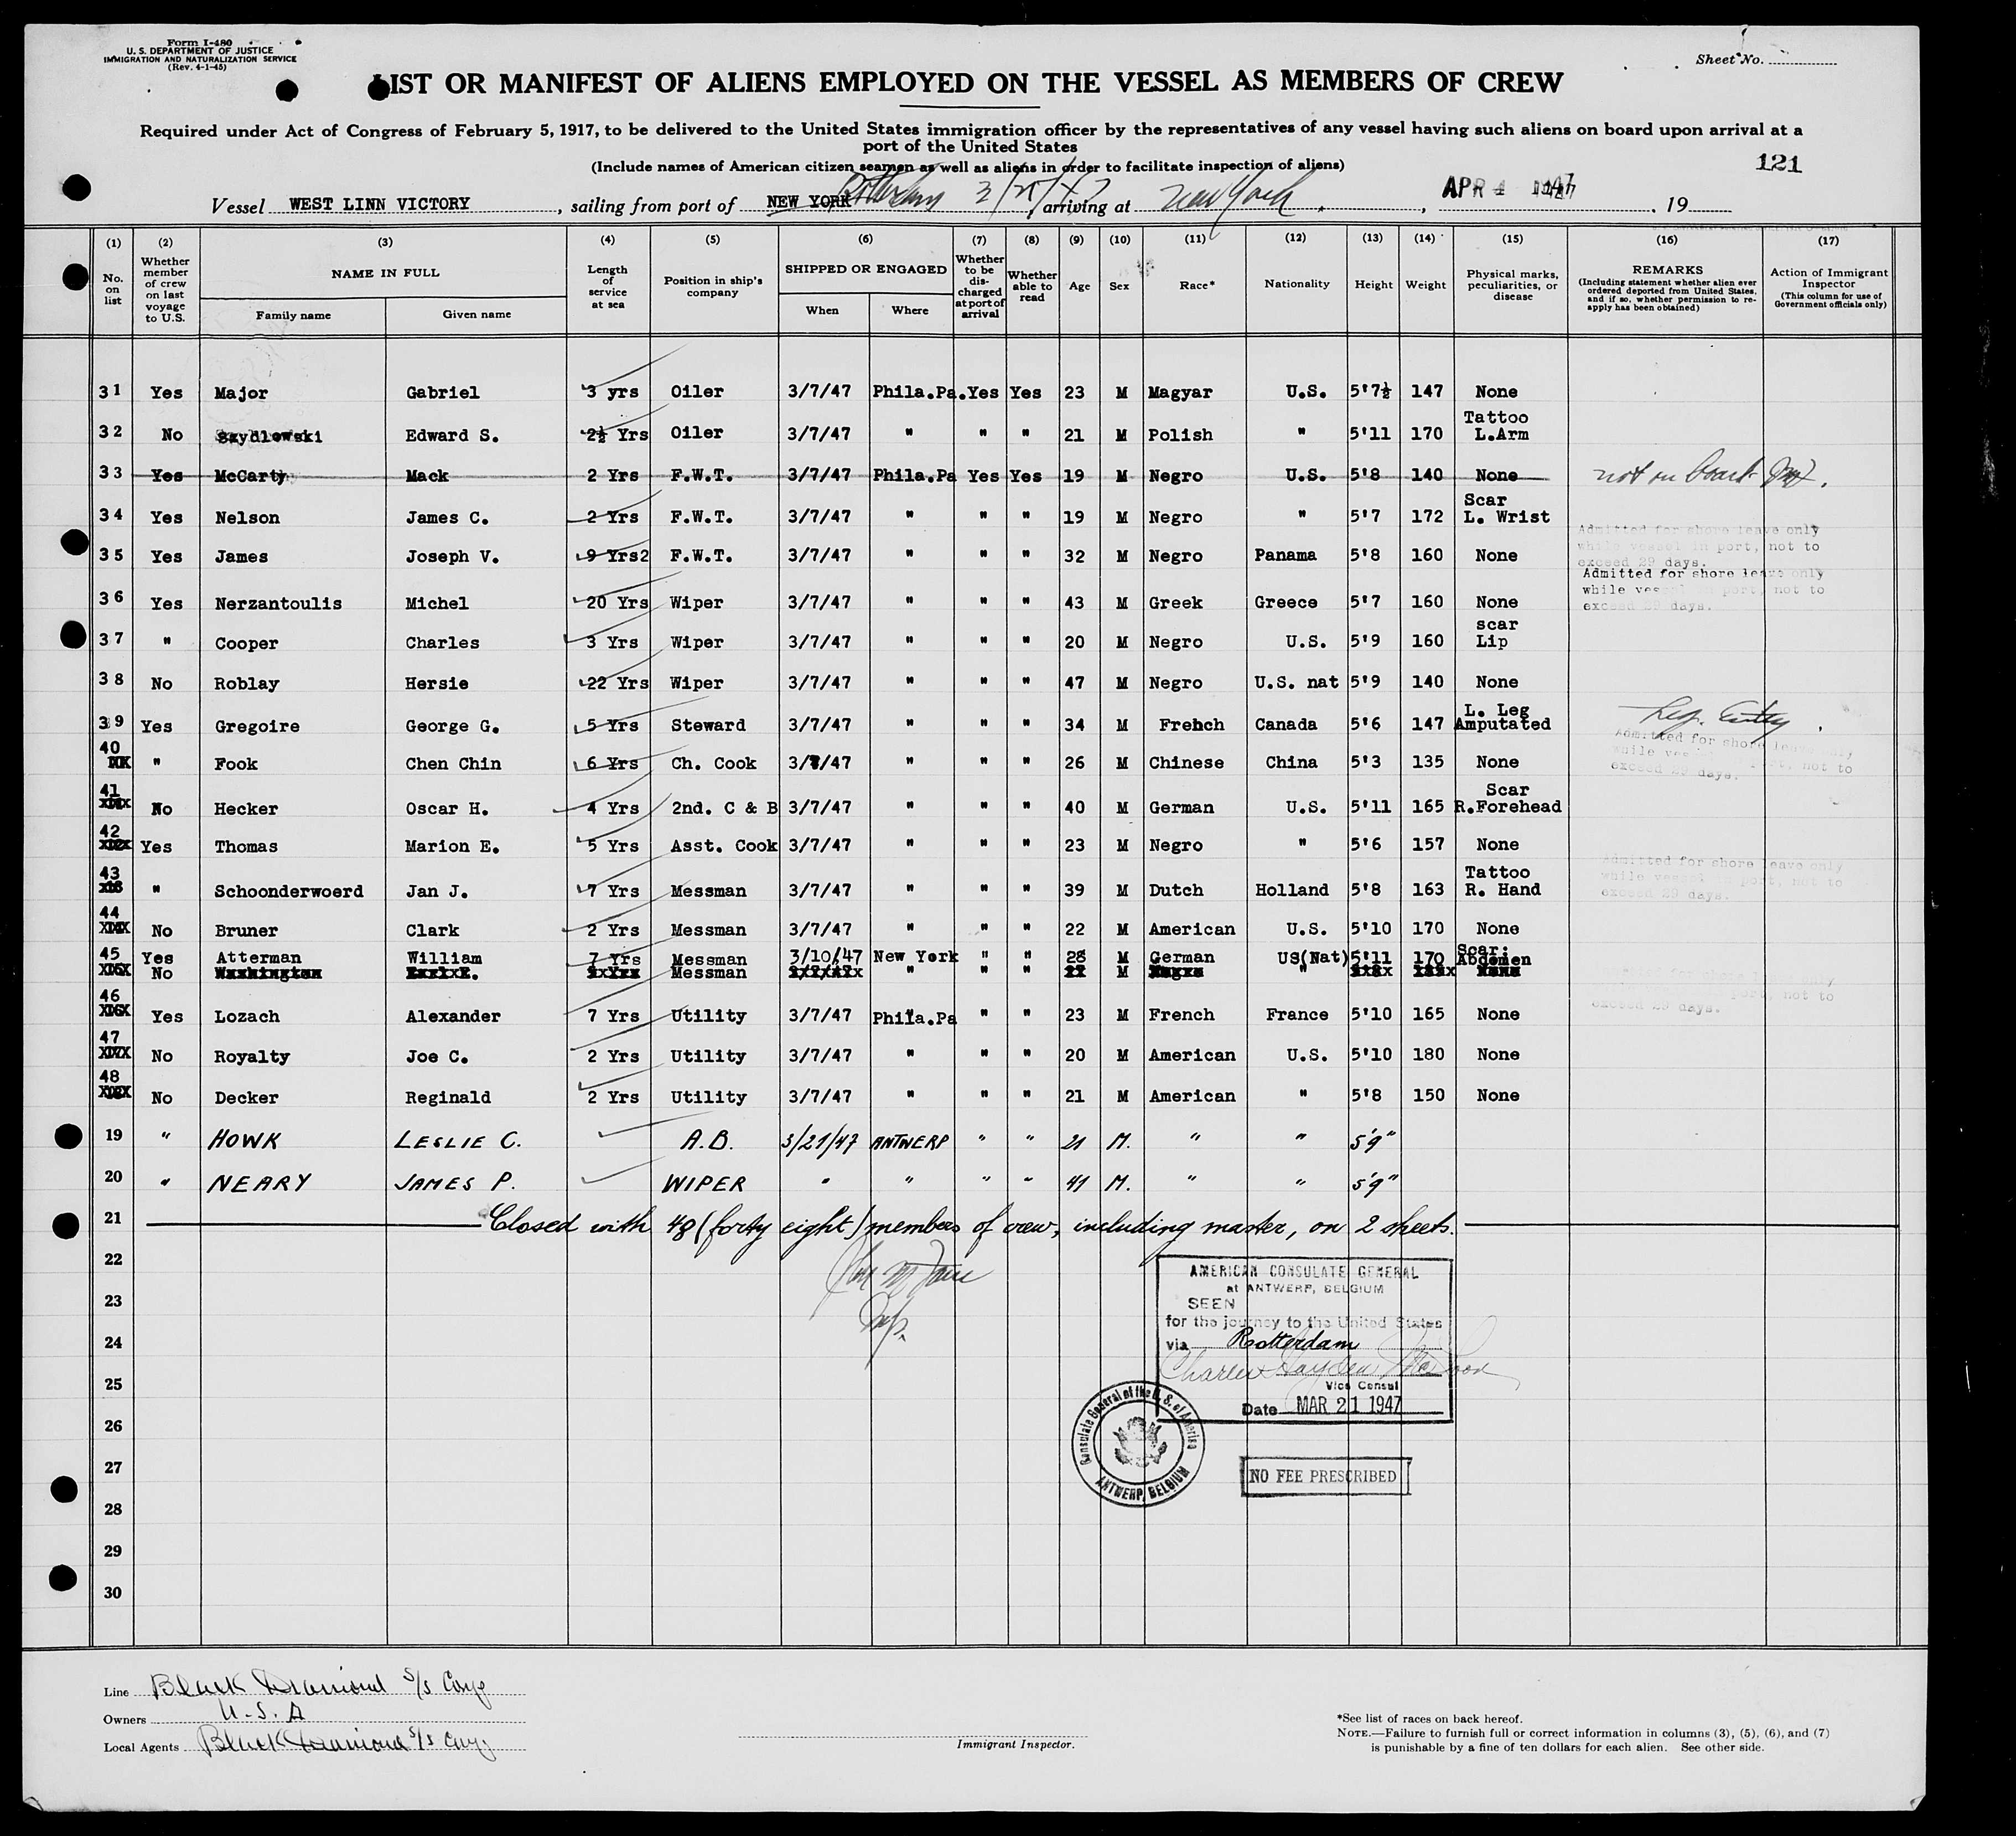 Form I-480
U. S. DEPARTMENT OF JUSTICE
IMMIGRATION AND NATURALIZATION SERVICE
(Rev. 4-1-45)
Sheet No.
LIST OR MANIFEST OF ALIENS EMPLOYED ON THE VESSEL AS MEMBERS OF CREW
Required under Act of Congress of February 5, 1917, to be delivered to the United States immigration officer by the representatives of any vessel having such aliens on board upon arrival at a
port of the United States
(Include names of American citizen seamen as well as aliens in order to facilitate inspection of aliens)
121
Vessel WEST LINN VICTORY, sailing from port of NEW YORK Rotterdam, arriving at New York, APR 1 1947, 19
(1) (2) (3) (4) (5) (6) (7) (8) (9) (10) (11) (12) (13) (14) (15) (16) (17)
No. on list
Whether member of crew on last voyage to U.S.
NAME IN FULL
Family name Given name
Length of service at sea
Position in ship's company
SHIPPED OR ENGAGED
When Where
Whether to be discharged at port of arrival
Whether able to read
Age
Sex
Race*
Nationality
Height
Weight
Physical marks, peculiarities, or disease
REMARKS
(Including statement whether alien ever ordered deported from United States, and if so, whether permission to re-apply has been obtained)
Action of Immigrant Inspector
(This column for use of Government officials only)
31 Yes Major Gabriel 3 yrs Oiler 3/7/47 Phila.Pa. Yes Yes 23 M Magyar U.S. 5'7½ 147 None
32 No Szydlowski Edward S. 2½ Yrs Oiler 3/7/47 " " " 21 M Polish " 5'11 170 Tattoo L.Arm
33 Yes McCarty Mack 2 Yrs F.W.T. 3/7/47 Phila.Pa Yes Yes 19 M Negro U.S. 5'8 140 None not on board
34 Yes Nelson James C. 2 Yrs F.W.T. 3/7/47 " " " 19 M Negro " 5'7 172 Scar L. Wrist
35 Yes James Joseph V. 9 Yrs2 F.W.T. 3/7/47 " " " 32 M Negro Panama 5'8 160 None Admitted for shore leave only while vessel in port, not to exceed 29 days.
36 Yes Nerzantoulis Michel 20 Yrs Wiper 3/7/47 " " " 43 M Greek Greece 5'7 160 None Admitted for shore leave only while vessel in port, not to exceed 29 days.
37 " Cooper Charles 3 Yrs Wiper 3/7/47 " " " 20 M Negro U.S. 5'9 160 scar Lip
38 No Roblay Hersie 22 Yrs Wiper 3/7/47 " " " 47 M Negro U.S. nat 5'9 140 None
39 Yes Gregoire George G. 5 Yrs Steward 3/7/47 " " " 34 M French Canada 5'6 147 L. Leg Amputated
40 " Fook Chen Chin 6 Yrs Ch. Cook 3/7/47 " " " 26 M Chinese China 5'3 135 None Admitted for shore leave only while vessel in port, not to exceed 29 days.
41 No Hecker Oscar H. 4 Yrs 2nd. C & B 3/7/47 " " " 40 M German U.S. 5'11 165 Scar R.Forehead
42 Yes Thomas Marion E. 5 Yrs Asst. Cook 3/7/47 " " " 23 M Negro " 5'6 157 None
43 " Schoonderwoerd Jan J. 7 Yrs Messman 3/7/47 " " " 39 M Dutch Holland 5'8 163 Tattoo R. Hand Admitted for shore leave only while vessel in port, not to exceed 29 days.
44 No Bruner Clark 2 Yrs Messman 3/7/47 " " " 22 M American U.S. 5'10 170 None
45 Yes Atterman William 7 Yrs Messman 3/10/47 New York " " 28 M German US(Nat) 5'11 170 Scar: Abdomen
No Washington Messman " " " M "
46 Yes Lozach Alexander 7 Yrs Utility 3/7/47 Phila.Pa " " 23 M French France 5'10 165 None
47 No Royalty Joe C. 2 Yrs Utility 3/7/47 " " " 20 M American U.S. 5'10 180 None
48 No Decker Reginald 2 Yrs Utility 3/7/47 " " " 21 M American " 5'8 150 None
19 " HOWK LESLIE C. A.B. 3/21/47 ANTWERP " " 21 M. " " 5'9"
20 " NEARY JAMES P. WIPER " " " " 41 M. " " 5'9"
21 Closed with 48 (forty eight) members of crew, including master, on 2 sheets.
22
23
24
25
26
27
28
29
30
AMERICAN CONSULATE GENERAL
at ANTWERP, BELGIUM
SEEN
for the journey to the United States
via Rotterdam
Vice Consul
Date MAR 21 1947
Consulate General of the U. S. of America
ANTWERP, BELGIUM
NO FEE PRESCRIBED
Line Black Diamond S/S Corp
Owners U.S.A
Local Agents Black Diamond S/S Corp.
Immigrant Inspector.
*See list of races on back hereof.
NOTE.—Failure to furnish full or correct information in columns (3), (5), (6), and (7)
is punishable by a fine of ten dollars for each alien. See other side.